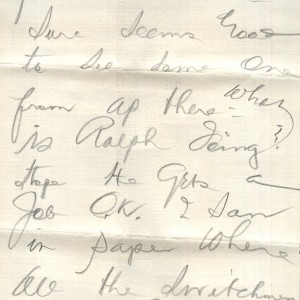 Sure Seems Good
to See Some One
from up there - What
is Ralph Doing?
Hope He Gets a
Job O.K. I Saw
in paper Where
all the Switchmen